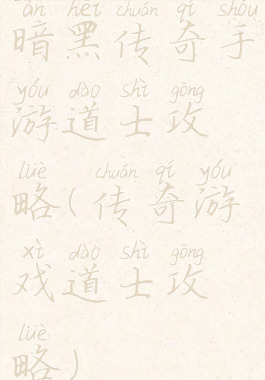 àn hēi chuán qí shǒu
暗黑传奇手
yóu dào shì gōng
游道士攻
lüè chuán qí yóu
略(传奇游
xì dào shì gōng
戏道士攻
lüè
略)